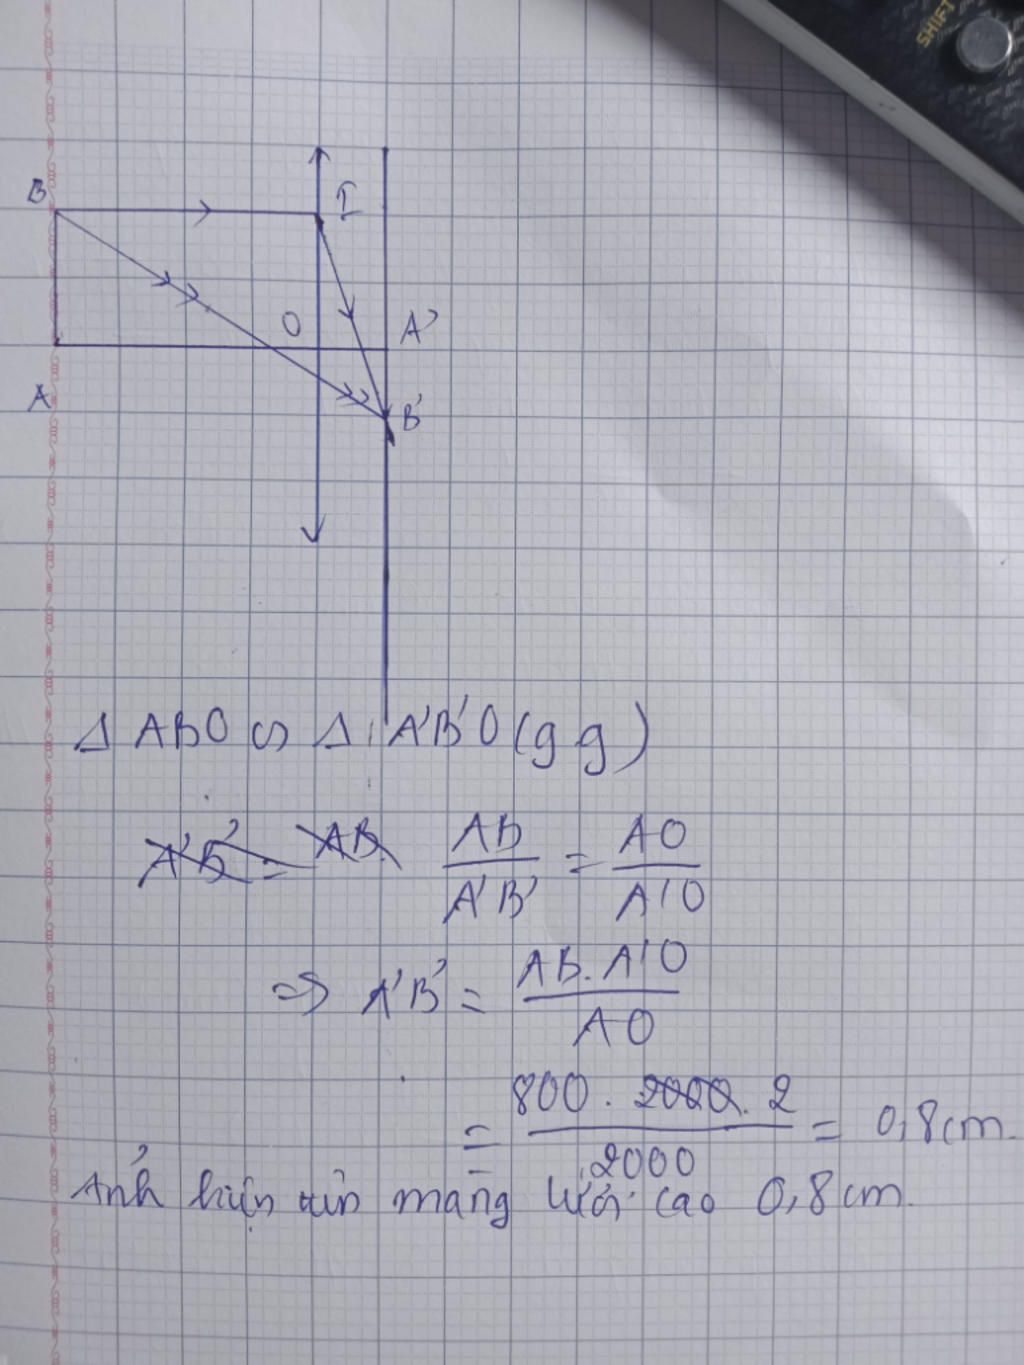 SHIFT
B
I
O
A'
A
B'
Δ ABO ∽ Δ A'B'O (g g)
A'B' = AB AB/A'B' = AO/A'O
=> A'B' = AB. A'O/AO
= 800 . 2000 . 2/2000 = 0,8cm.
Ảnh hiện trên màng lưới cao 0,8cm.